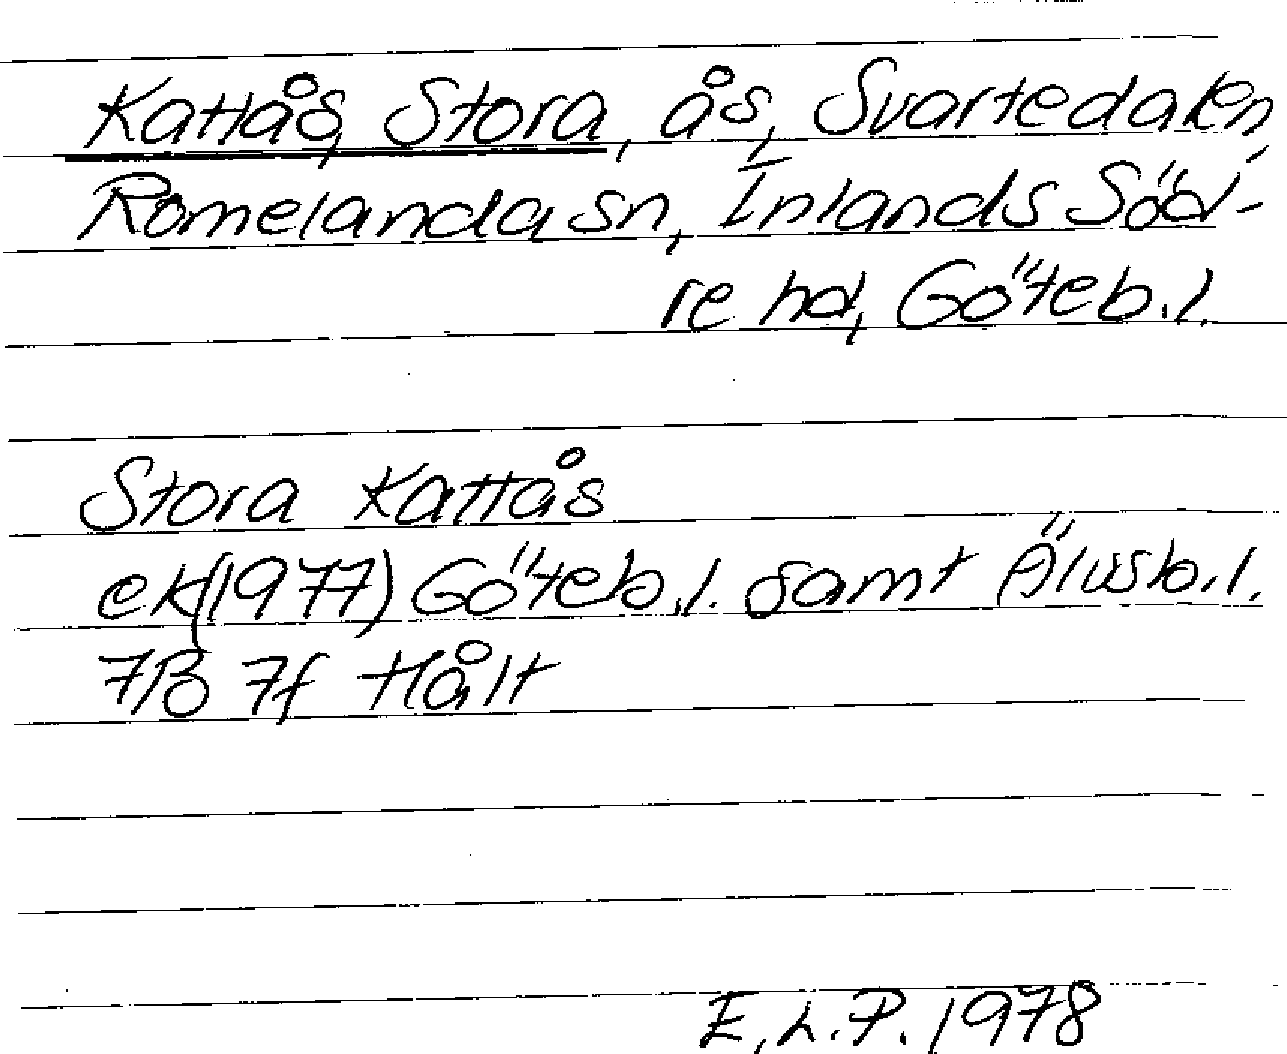 Kattås, Stora, ås, Svartedalen,
Romelanda sn, Inlands Söd-
re hd, Göteb.l.
Stora Kattås
ek(1977) Göteb.l. samt Älvsb.l.
7B 7f Hålt
E.L.P. 1978